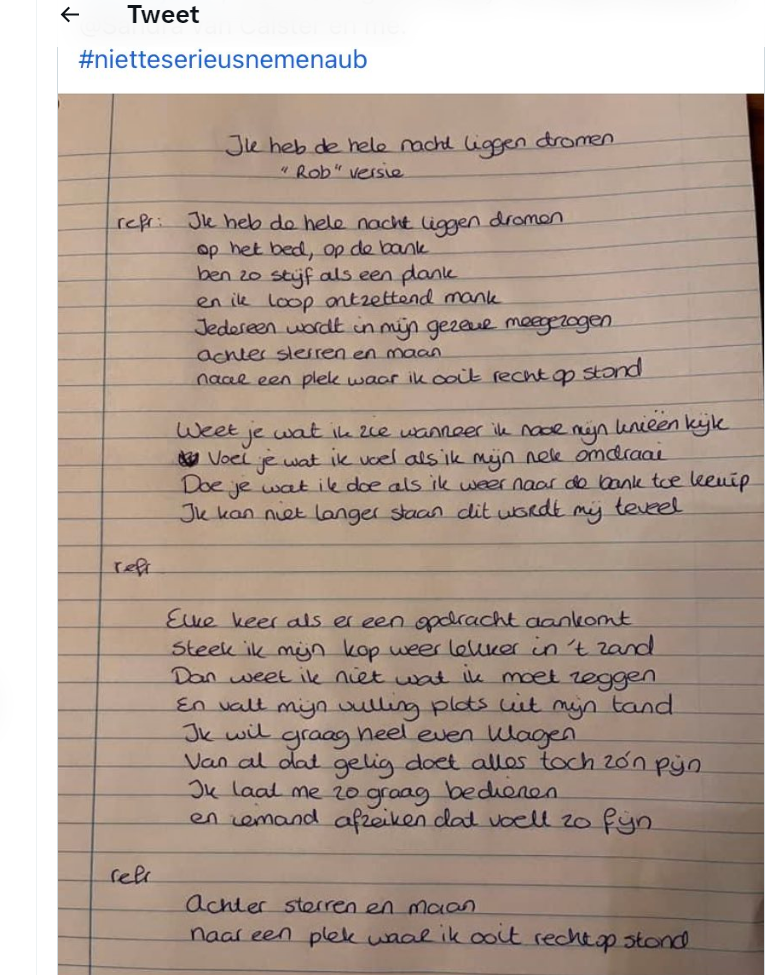 ← Tweet
#nietteserieusnemenaub
Ik heb de hele nacht liggen dromen
"Rob" versie
refr: Ik heb de hele nacht liggen dromen
op het bed, op de bank
ben zo stijf als een plank
en ik loop ontzettend mank
Iedereen wordt in mijn gezeur meegezogen
achter sterren en maan
naar een plek waar ik ooit recht op stond
Weet je wat ik zie wanneer ik naar mijn knieën kijk
Voel je wat ik voel als ik mijn nek omdraai
Doe je wat ik doe als ik weer naar de bank toe kruip
Ik kan niet langer staan dit wordt mij teveel
refr
Elke keer als er een opdracht aankomt
Steek ik mijn kop weer lekker in 't zand
Dan weet ik niet wat ik moet zeggen
En valt mijn vulling plots uit mijn tand
Ik wil graag heel even klagen
Van al dat gelig doet alles toch zo'n pijn
Ik laat me zo graag bedienen
en iemand afzeiken dat voelt zo fijn
refr
Achter sterren en maan
naar een plek waar ik ooit recht op stond